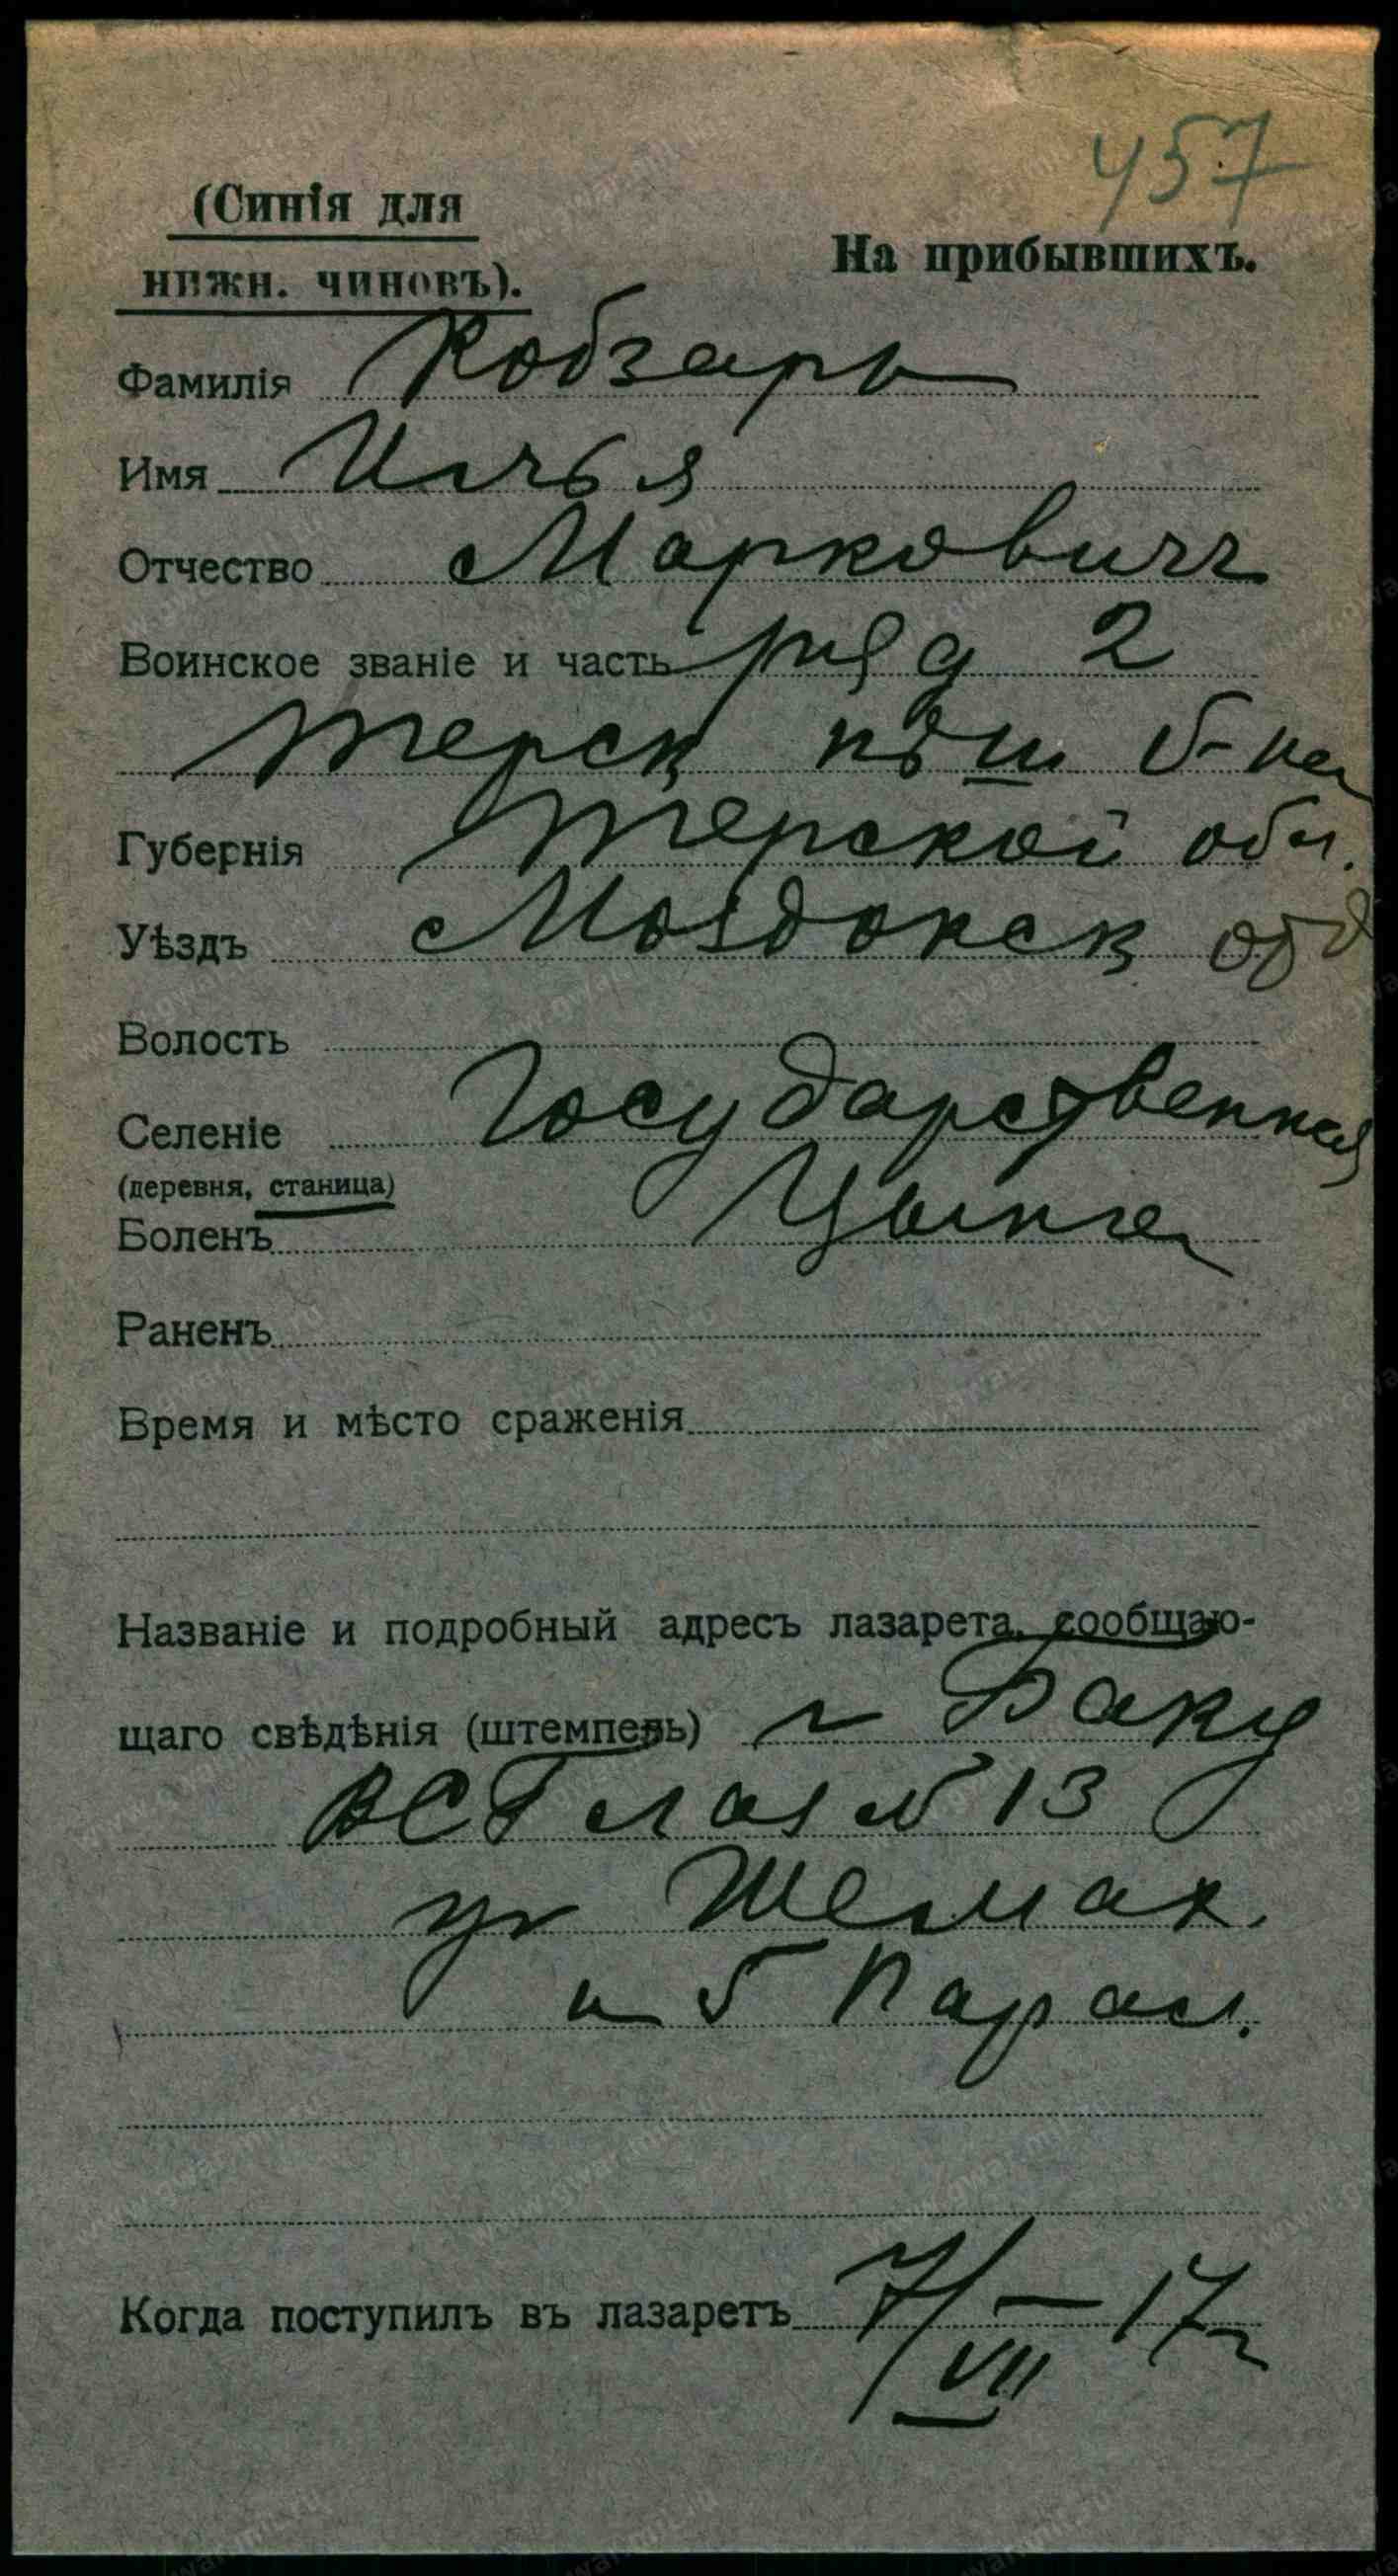 457
(Синія для
нижн. чиновъ).
На прибывшихъ.
Фамилія Кобзарь
Имя Илья
Отчество Маркович
Воинское званіе и часть ряд 2
Терск пѣш б-на
Губернія Терской обл.
Уѣздъ Моздокск отд
Волость
Селеніе Государственная
(деревня, станица)
Боленъ Цынга
Раненъ
Время и мѣсто сраженія
Названіе и подробный адресъ лазарета, сообщаю-
щаго свѣдѣнія (штемпель) г Баку
ВСГ лаз № 13
уг Шемах.
и 5 Парал.
Когда поступилъ въ лазаретъ 7/VII – 17 г